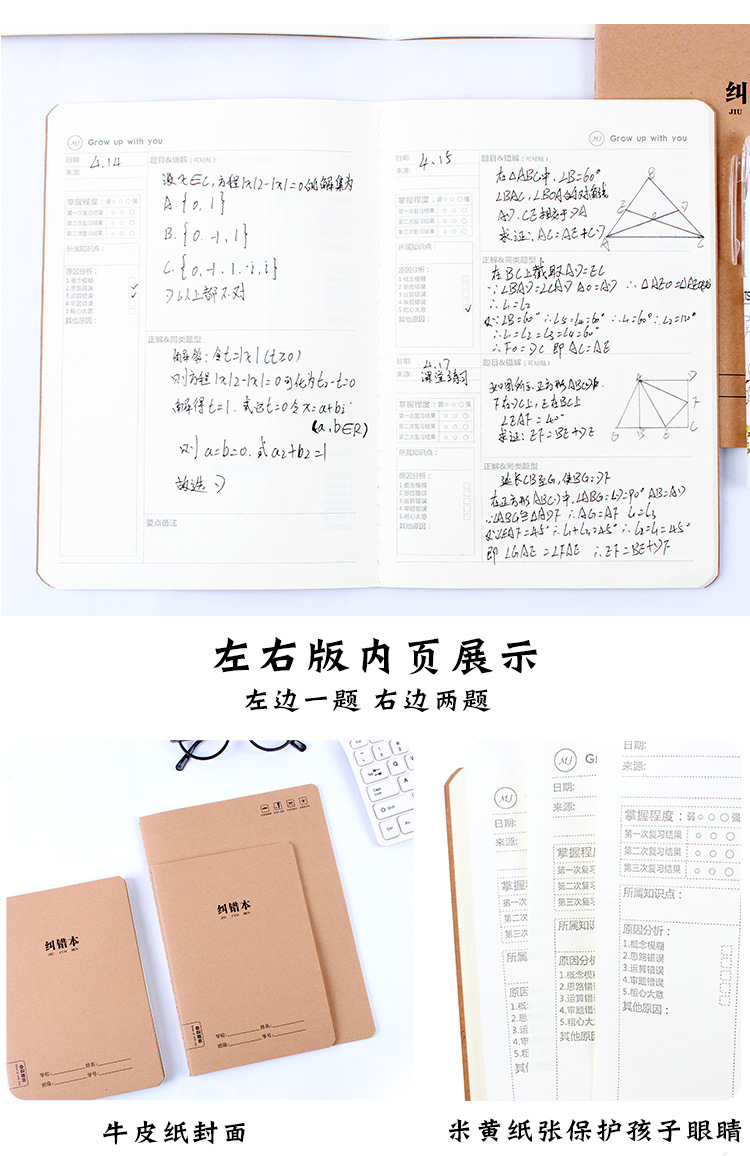 纠
JIU
MJ Grow up with you
日期: 4.14
来源:
题目&错解(可粘贴)
设x∈C,方程|x|2-|x|=0的解集为
A.{0,1}
B.{0.-1,1}
C.{0.-1.1.-i,i}
D以上都不对
掌握程度:弱○○○强
第一次复习结果
第二次复习结果
第三次复习结果
所属知识点:
原因分析:
1.概念模糊
2.思路错误
3.运算错误
4.审题错误
5.粗心大意
其他原因:
正解&同类题型
解答:令t=|x|(t≥0)
则方程|x|2-|x|=0可化为t2-t=0
解得t=1.或t=0令x=a+bi
(a,b∈R)
则 a=b=0.或a2+b2=1
故选D
要点备注
MJ Grow up with you
日期: 4.15
来源:
题目&错解(可粘贴)
在△ABC中,∠B=60°
∠BAC,∠BCA的
AD,CE相交于
求证:AC=AE+CD
掌握程度:弱○○○强
第一次复习结果
第二次复习结果
第三次复习结果
所属知识点:
原因分析:
1.概念模糊
2.思路错误
3.运算错误
4.审题错误
5.粗心大意
其他原因:
正解&同类题型
日期: 4.17
来源: 课堂练习
题目&错解(可粘贴)
如图所示,正方形ABCD中.
F在DC上,E在BC上
求证:EF=BE+DF
掌握程度:弱○○○强
第一次复习结果
第二次复习结果
第三次复习结果
所属知识点:
原因分析:
1.概念模糊
2.思路错误
3.运算错误
4.审题错误
5.粗心大意
其他原因:
正解&同类题型
延长CB至G,使BG=DF
左右版内页展示
左边一题 右边两题
纠错本
JIU CUO BEN
学校: 姓名:
班级: 学号:
纠错本
JIU CUO BEN
学校: 姓名:
班级: 学号:
MJ
日期:
来源:
掌握
第一次
第二次
第三次
所属
原因
1.概
2.思
3.运
4.审
5.粗
其他
MJ Gr
日期:
来源:
掌握程度
第一次复
第二次复
第三次复
所属知识
原因分析
1.概念模
2.思路错
3.运算错
4.审题错
5.粗心大
其他原因
日期:
来源:
掌握程度:弱○○○强
第一次复习结果
第二次复习结果
第三次复习结果
所属知识点:
原因分析:
1.概念模糊
2.思路错误
3.运算错误
4.审题错误
5.粗心大意
其他原因:
牛皮纸封面
米黄纸张保护孩子眼睛